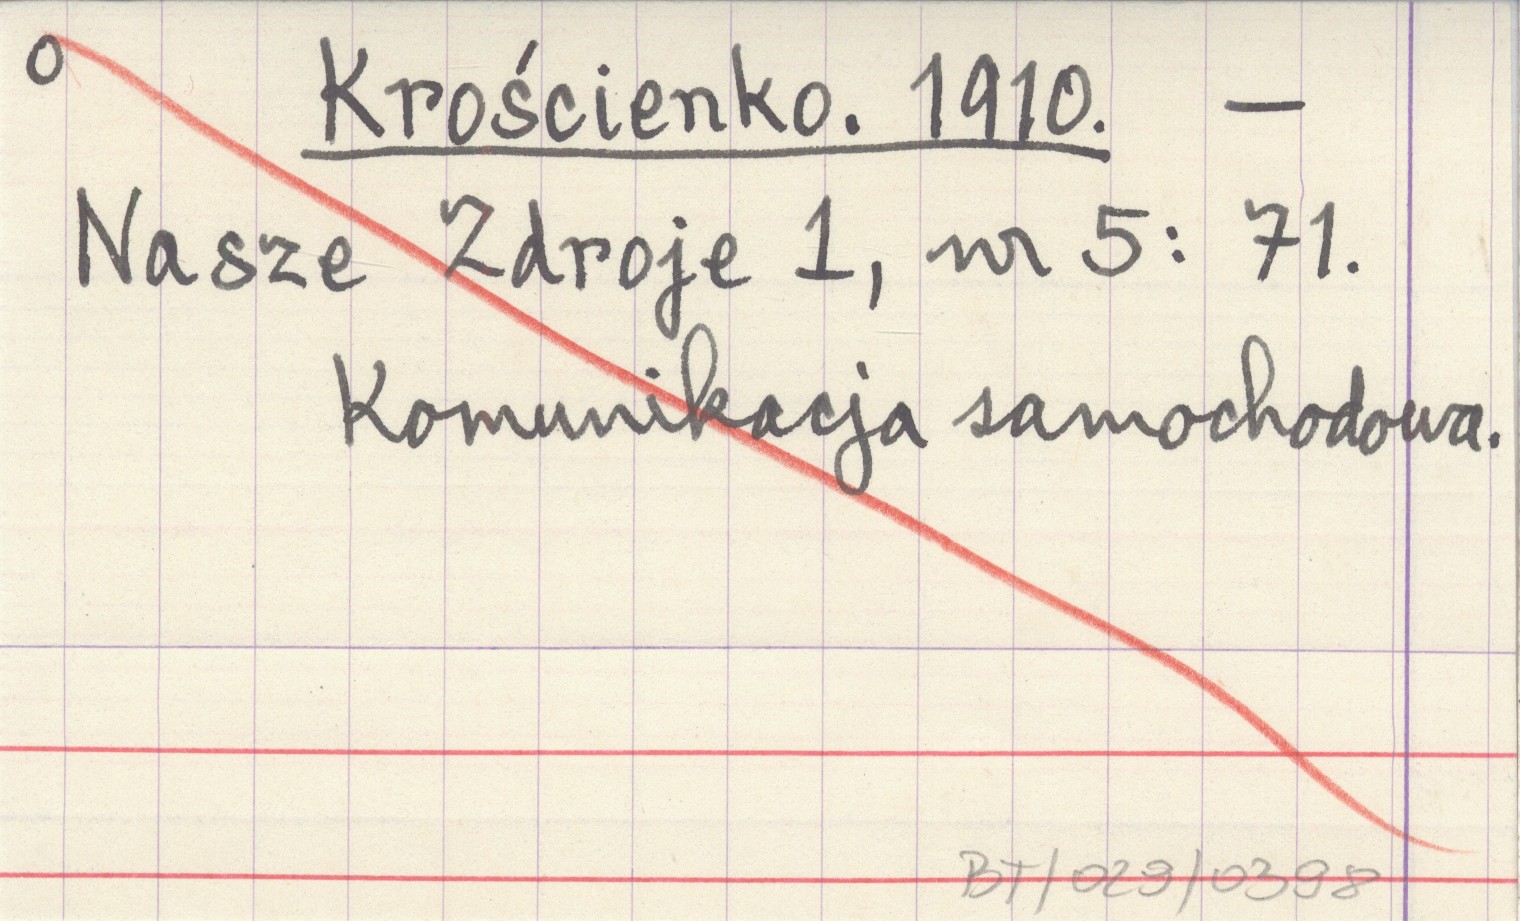 o Krościenko. 1910. —
Nasze Zdroje 1, nr 5: 71.
Komunikacja samochodowa.
BT/029/0398